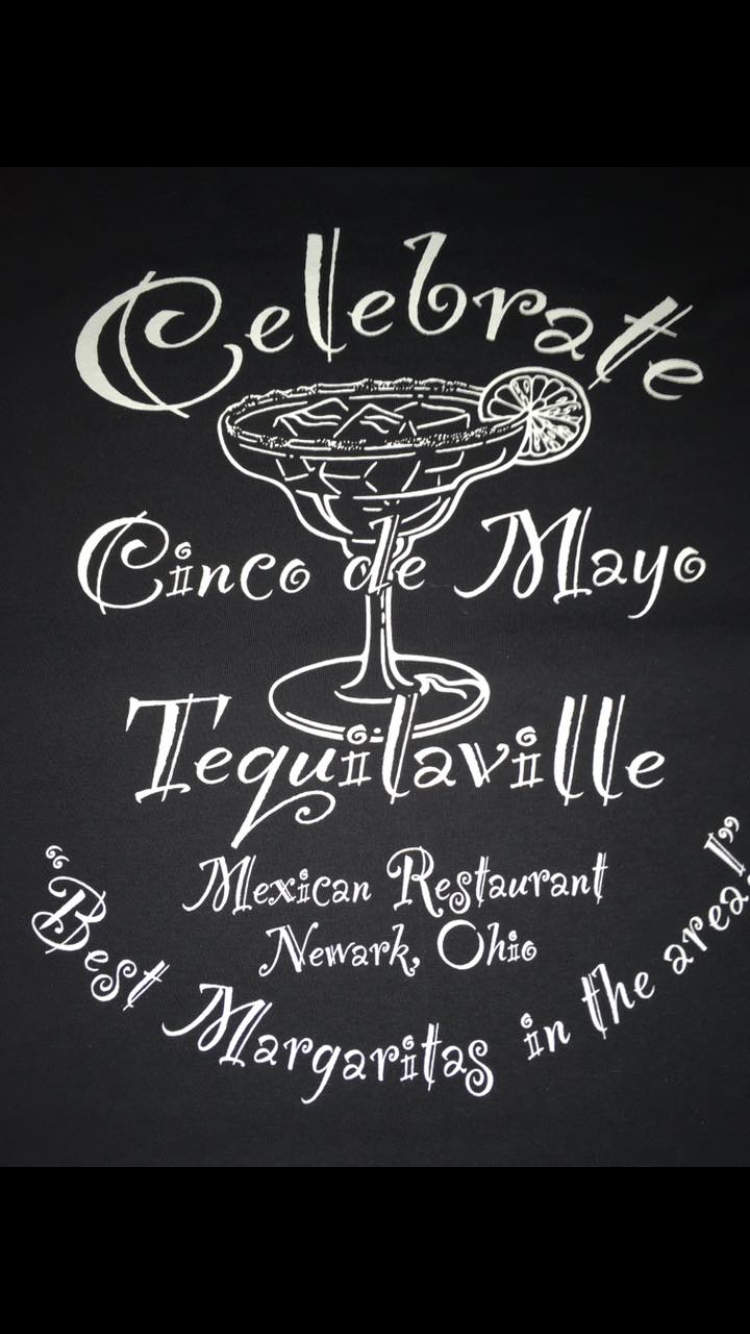 Celebrate
Cinco de Mayo
Tequilaville
Mexican Restaurant
Newark, Ohio
“Best Margaritas in the area!”